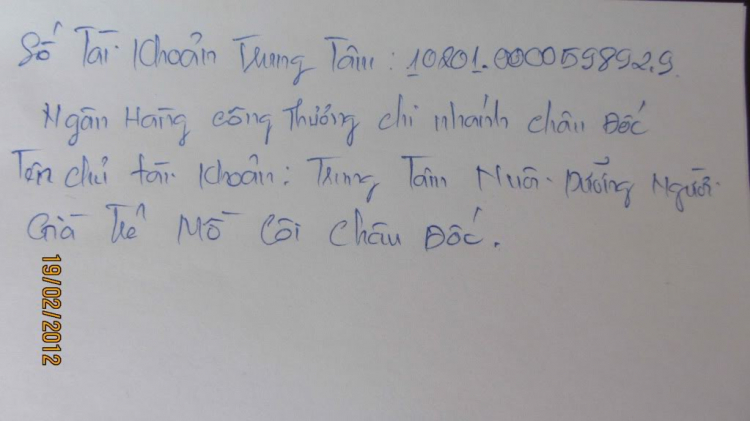 Số Tài Khoản Trung Tâm : 10201.000059892.9.
Ngân Hàng công Thương chi nhánh châu Đốc
Tên chủ tài khoản : Trung Tâm Nuôi Dưỡng Người
Già Trẻ Mồ Côi Châu Đốc.
19/02/2012